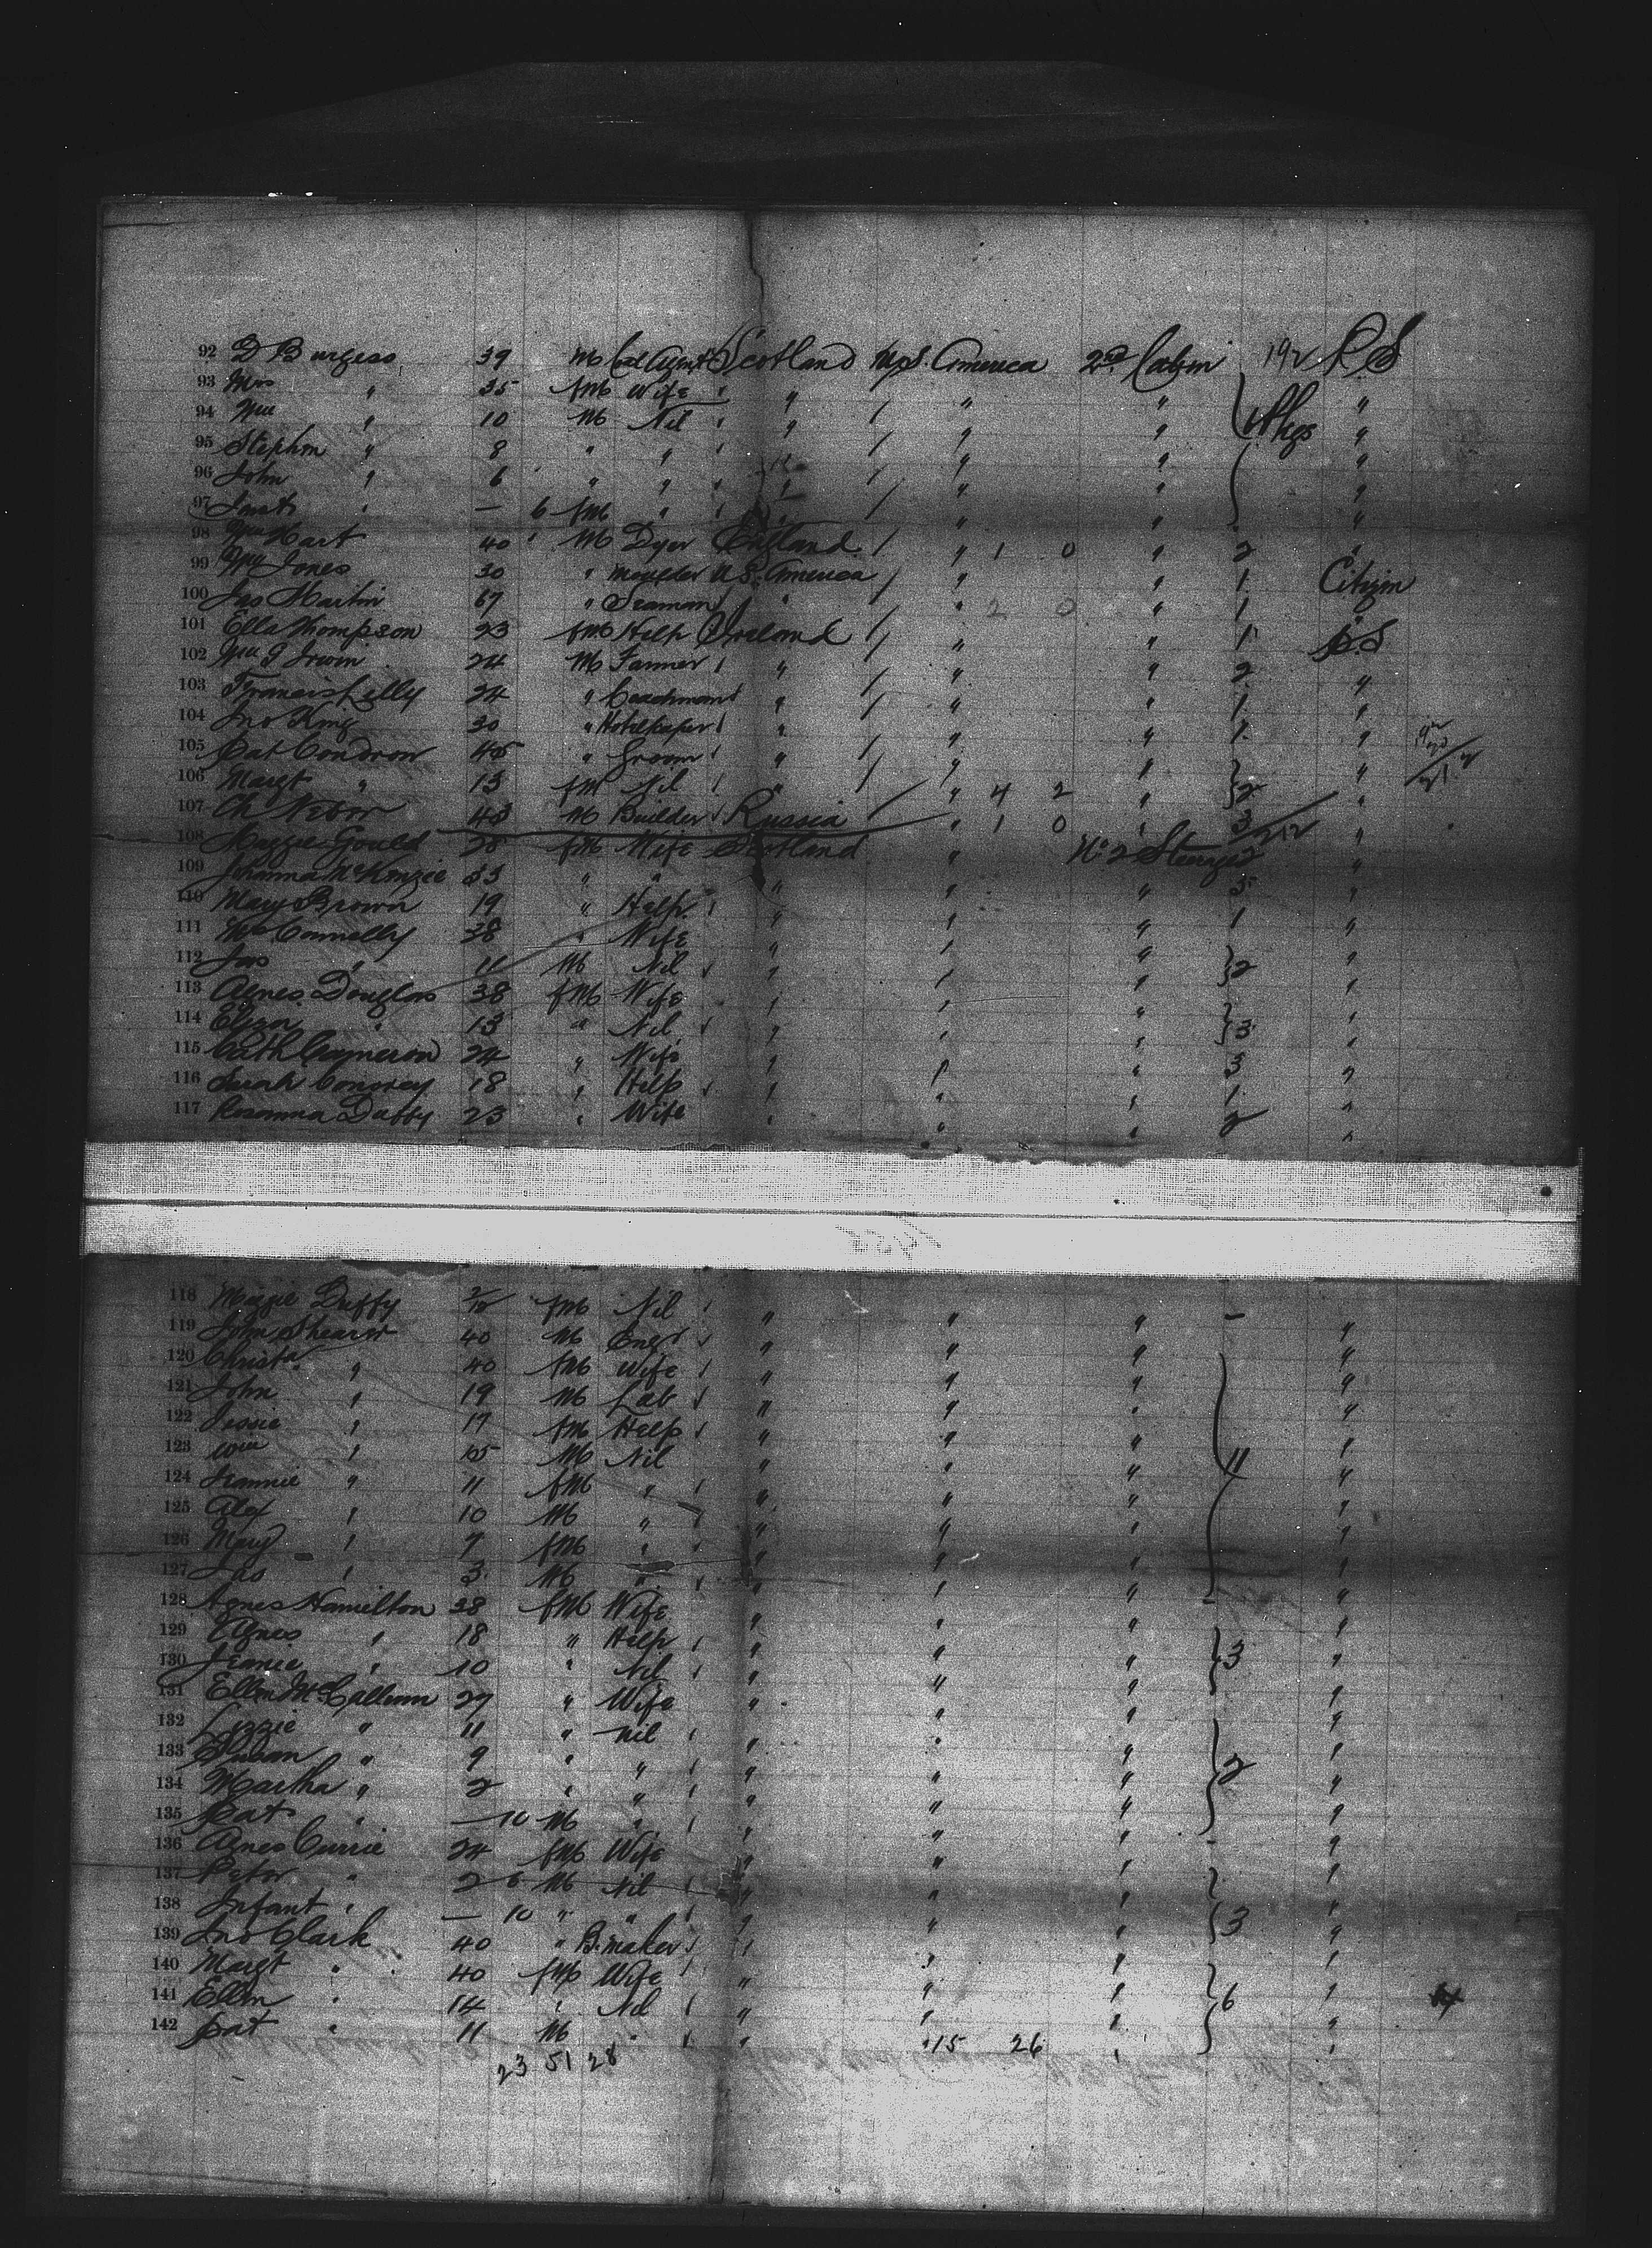 92 D Burgess 39 M Coal Agent Scotland U.S. America 2nd Cabin 192 P.S
93 Mrs " 35 fM Wife " " " "
94 Wm " 10 M Nil " " " Pkgs "
95 Stephn " 8 " " " " "
96 John " 6 " " " " "
97 Infant " — 6 fM " " " "
98 Wm Hart 40 M Dyer England " 1 0 " 2 "
99 Wm Jones 30 " Moulder U.S. America " " 1 Citizn
100 Jas Martin 67 " Seaman " " 2 0 " 1 "
101 Ella Thompson 23 fM Help Ireland " " 1 P.S
102 Wm J Irwin 24 M Farmer " " " 2 "
103 Francis Lilly 24 " Coachman " " " 1 "
104 Jno King 30 " Hotelkeeper " " " 1 "
105 Pat Condron 45 " Groom " " " "
106 Margt " 13 fM Nil " " 4 2 " 2 "
107 48 M Builder Russia " 1 0 " 3 212 "
108 Maggie Gould 28 fM Wife Scotland " No 2 Steerage 2 "
109 Johanna McKenzie 33 " " " " " 3 "
110 Mary Brown 19 " Help " " " 1 "
111 Mrs Connelly 38 " Wife " " " "
112 Jas " 11 M Nil " " " 2 "
113 Agnes Douglas 38 fM Wife " " " "
114 Eliza " 13 " Nil " " " 3 "
115 Cath Cameron 24 " Wife " " " 3 "
116 Sarah Conovey 18 " Help " " " 1 "
117 Rosanna Duffy 23 " Wife " " " 2 "
118 Maggie Duffy fM Nil " " " — "
119 John Shearer 40 M Engr " " " "
120 Christa " 40 fM Wife " " " "
121 John " 19 M Lab " " " "
122 Jessie " 17 fM Help " " " "
123 Wm " 15 M Nil " " " 11 "
124 Jeannie " 11 fM " " " " "
125 Alex " 10 M " " " " "
126 Mary " 7 fM " " " " "
127 Jas " 3 M " " " " "
128 Agnes Hamilton 38 fM Wife " " " "
129 Agnes " 18 " Help " " " "
130 Jeanie " 10 " Nil " " " 3 "
131 Ellen McCallum 27 " Wife " " " "
132 Lizzie " 11 " Nil " " " "
133 Susan " 9 " " " " " "
134 Martha " 2 " " " " " 2 "
135 Pat " — 10 M " " " " "
136 Agnes Currie 24 fM Wife " " " "
137 Peter " 2 6 M Nil " " " "
138 Infant " — 10 " " " " " 3 "
139 Jno Clark 40 " B. maker " " " "
140 Margt " 40 fM Wife " " " "
141 Ellen " 14 " Nil " " " 6 "
142 Pat " 11 M " " " 15 26 " "
23 51 28